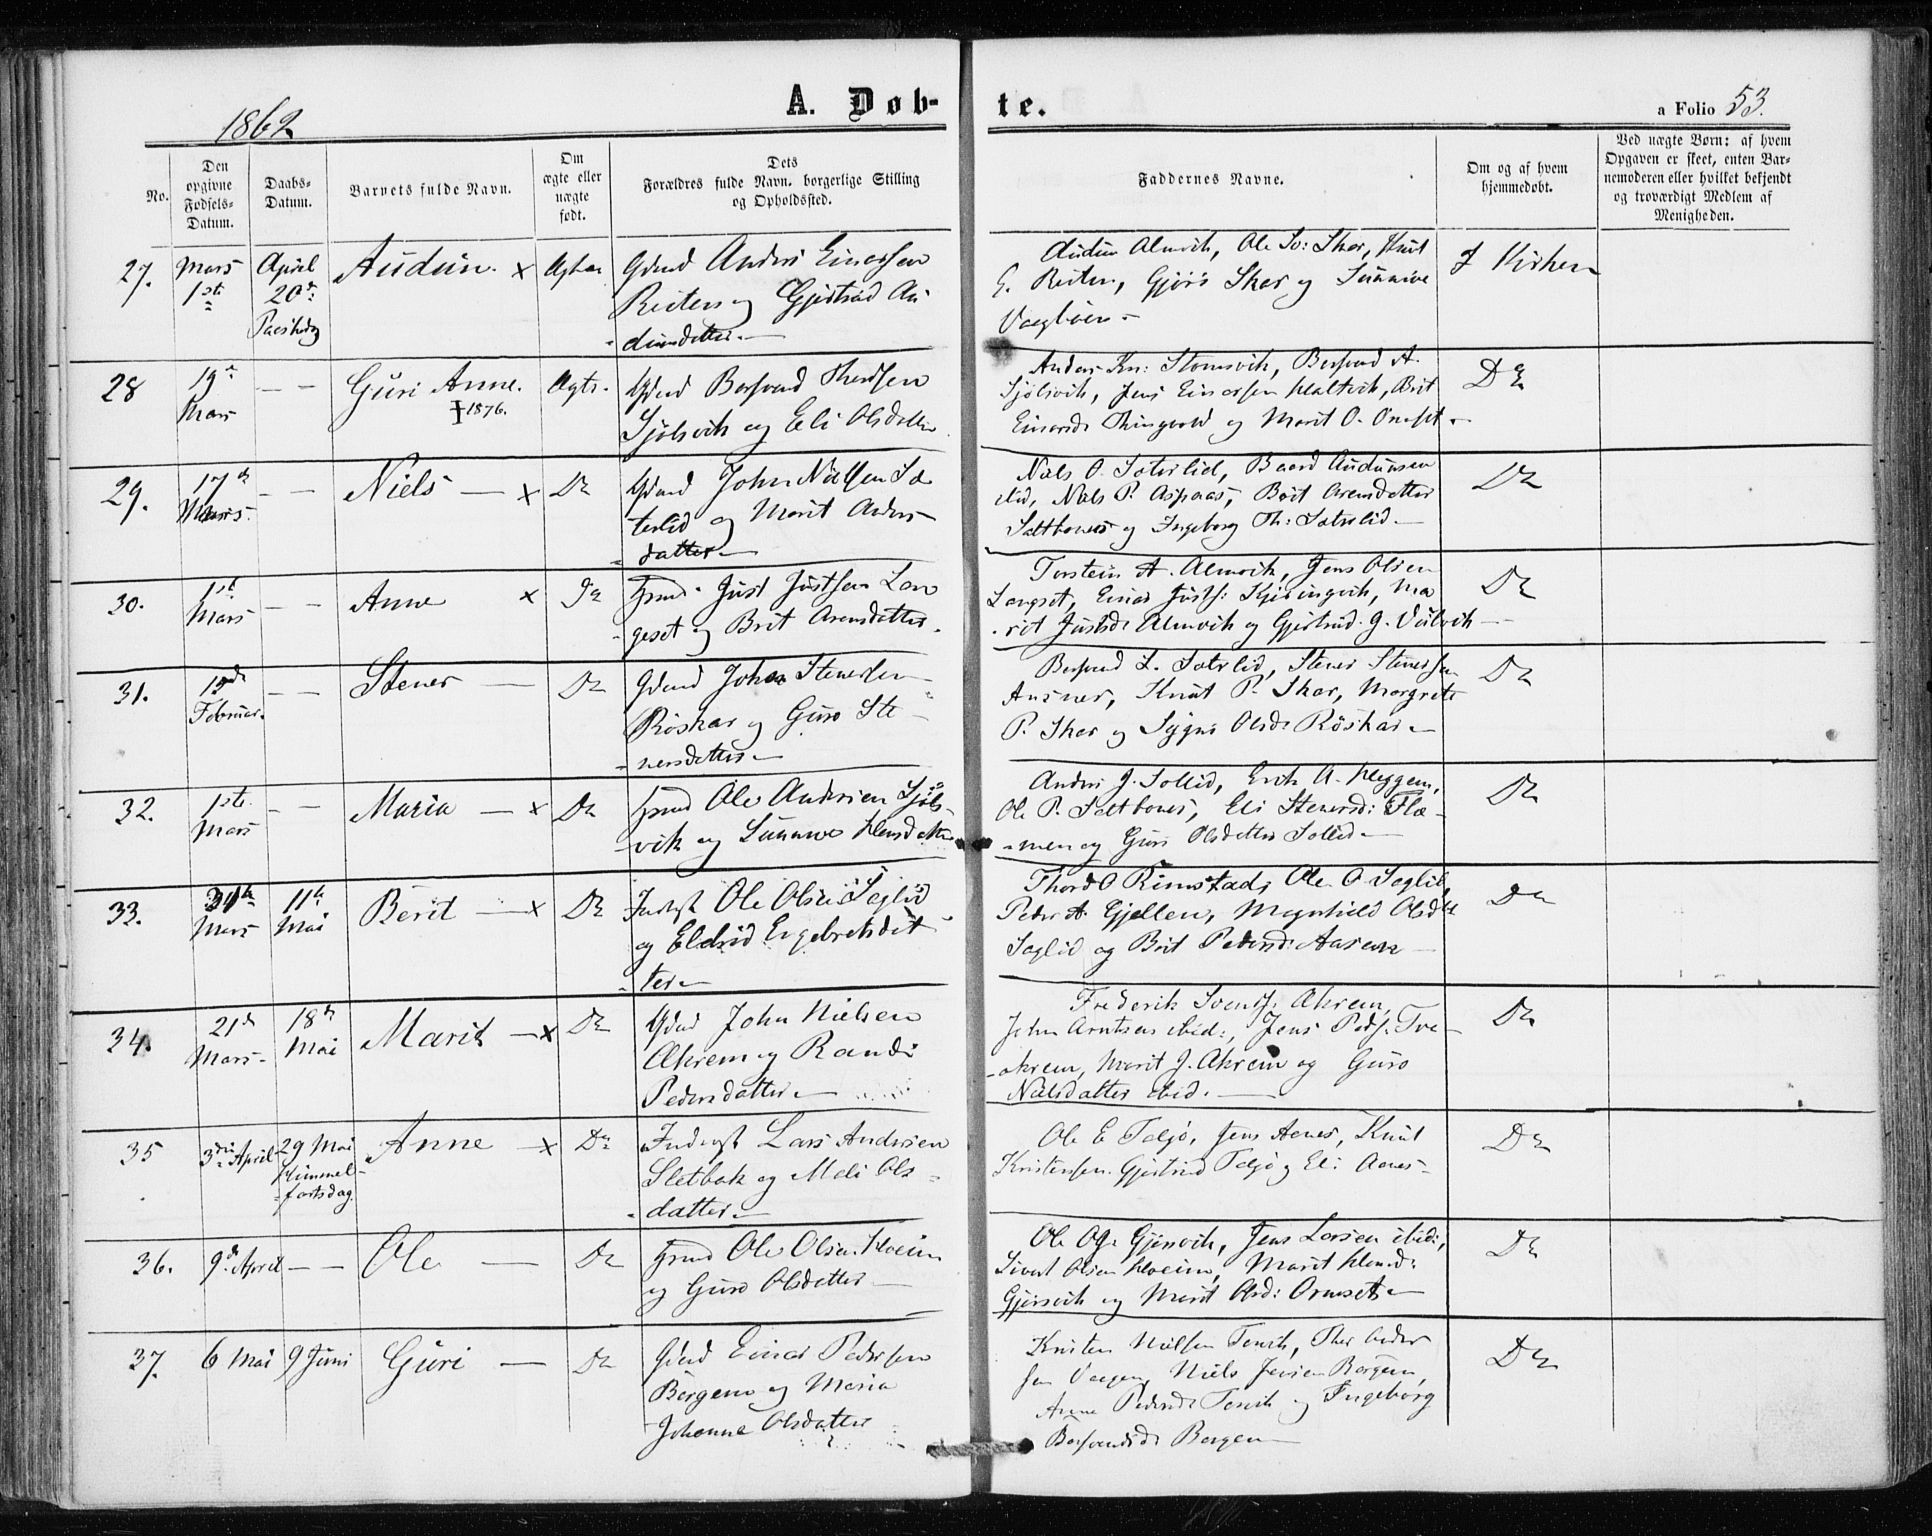 1862
A. Døb-
te.
a Folio 53.
No.
Den
opgivne
Fødsels-
Datum.
Daabs-
Datum.
Barnets fulde Navn.
Om
ægte eller
uægte
født.
Dets
Forældres fulde Navn, borgerlige Stilling
og Opholdssted.
Faddernes Navne.
Om og af hvem
hjemmedøbt.
Ved uægte Børn: af hvem
Opgaven er skeet, enten Bar-
nemoderen eller hvilket bekjendt
og troværdigt Medlem af
Menigheden.
27.
Mars
1ste
April
20de
Paaskedag
Audun. x
Anders Einersen
Reiten og Gjertrud Au-
dunsdatter.
Audun Almvik, Ole Skar, Knut
E. Reiten, Gjøri Skar og Sunnive
Vaagbøen
I Kirken
28
19de
Mars
— —
Guri Anne.
†1876.
Ægte.
Gdmd Bersvend
Sjølsvik og Eli Olsdatter
Anders Kn: Stomsvik, Bersvend A.
Sjølsvik, Jens Einersen, Brit
Einersd: Thingvold og Marit O.
Do
29.
17de
Mars.
— —
Niels — x
Do
Gdmd John Nielsen Sæ-
terlid og Marit Anders-
datter
Niels O. Sæterlid, Baard Audunsen
ibid, Niels P. Aspaas, Brit Arensdatter
Saltbones og Ingeborg Th: Sæterlid.
Do
30.
1ste
Mars
— —
Anne x
Do
Gmd. Just Justsen Lan-
geset og Brit Arensdatter.
Torstein A. Almvik, Jens Olsen
Langset, Einar Justs: Kjøsingvik, Ma-
rit Justsd: Almvik og Gjertrud J. Vulvik
Do
31.
15de
Februar.
— —
Stener —
Do
Gdmd John Stenersen
Röskar og Guro Ste-
nersdatter
Bersvend L. Sæterlid, Stener Stenersen
Ansnes, Knut P. Skar, Margrete
P. Skar og Sygni Olsd: Röskar
Do
32.
1ste
Mars
— —
Maria — x
Do
Gmd Ole Andersen Sjöls-
vik og Sunnive Hansdatter
Anders J. Sollid, Erik A. Meggem,
Ole P. Saltbones, Eli Stenersd: Flæ-
men og Guri Olsdatter Sollid
Do
33.
31te
Mars
11te
Mai
Berit — x
Do
Inderst Ole Olsen Seglid
og Eldrid Engebretsdat-
ter
Thord O Rimstad, Ole O. Seglid,
Peder A. Gjellen, Magnhild Olsdtr
Seglid og Brit Pedersd: Aasen
Do
34.
21de
Mars.
18de
Mai
Marit — x
Do
Gdmd John Nielsen
Akrem og Randi
Pedersdatter
Frederik Svends: Akrem,
John Arntsen ibid:, Jens Peds: Tve-
akrem, Marit J. Akrem og Guro
Nielsdatter ibid.
Do
35
3die April
29 Mai
Himmel-
fartsdag.
Anne — x
Do
Inderst Lars Andersen
Sletbak og Mali Ols-
datter
Ole E Taljø, Jens Aenes, Knut
Kristensen, Gjertrud Taljø og Eli Aenes
Do
36.
9de April
— —
Ole —
Do
Gmd Ole Olsen
og Guro Olsdatter
Ole Ols: Gjersvik, Jens Larsen ibid:,
Sivert Olsen, Marit
Gjersvik og Marit Olsd: Ormset
Do
37.
6 Mai
9 Juni
Guri —
Do
Gdmd Einar Pedersen
Bergem og Maria
Johanne Olsdatter
Kristen Nielsen Torvik, Thor Ander-
sen Vaagen, Niels Jensen Bergem,
Anne Pedersd: Torvik og Ingeborg
Bersvendsd: Bergem
Do